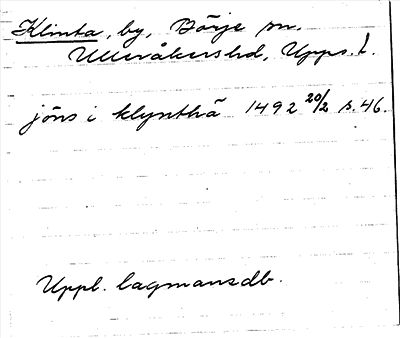 Klinta, by, Börje sn.
Ulleråkers hd, Upps. l.
jöns i klynthā 1492 20/2 s. 46.
Uppl. lagmansdb.